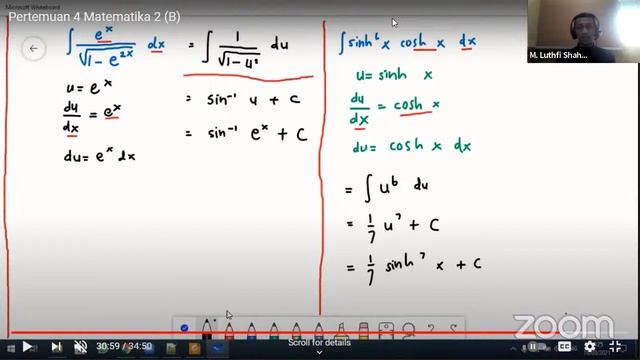 Microsoft Whiteboard
Pertemuan 4 Matematika 2 (B)
M. Luthfi Shah...
∫ e^x / √(1 - e^2x) dx = ∫ 1 / √(1 - u²) du
u = e^x
du/dx = e^x
du = e^x dx
= sin⁻¹ u + c
= sin⁻¹ e^x + C
∫ sinh⁶ x cosh x dx
u = sinh x
du/dx = cosh x
du = cosh x dx
= ∫ u⁶ du
= 1/7 u⁷ + C
= 1/7 sinh⁷ x + C
zoom
30:59 / 34:50
Scroll for details